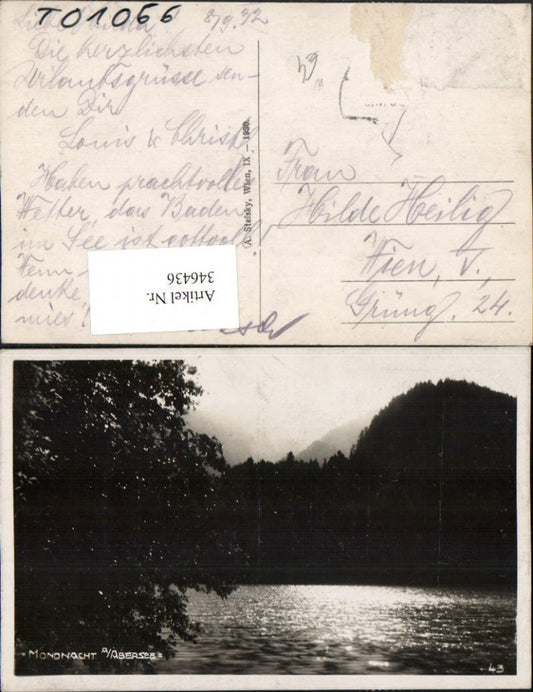 TO1066
8/9.32
Die herzlichsten
Urlaubsgrüsse sen-
den Dir
Louis & Christl
Haben prachtvolles
Wetter, das Baden
im See ist gottvoll
Wenn
denke
mies!
A. Stefsky, Wien, IX — 1930.
Frau
Hilde Heilig
Wien, V.,
Grüng. 24.
Artikel Nr.
346436
MONDNACHT A/ABERSEE
43